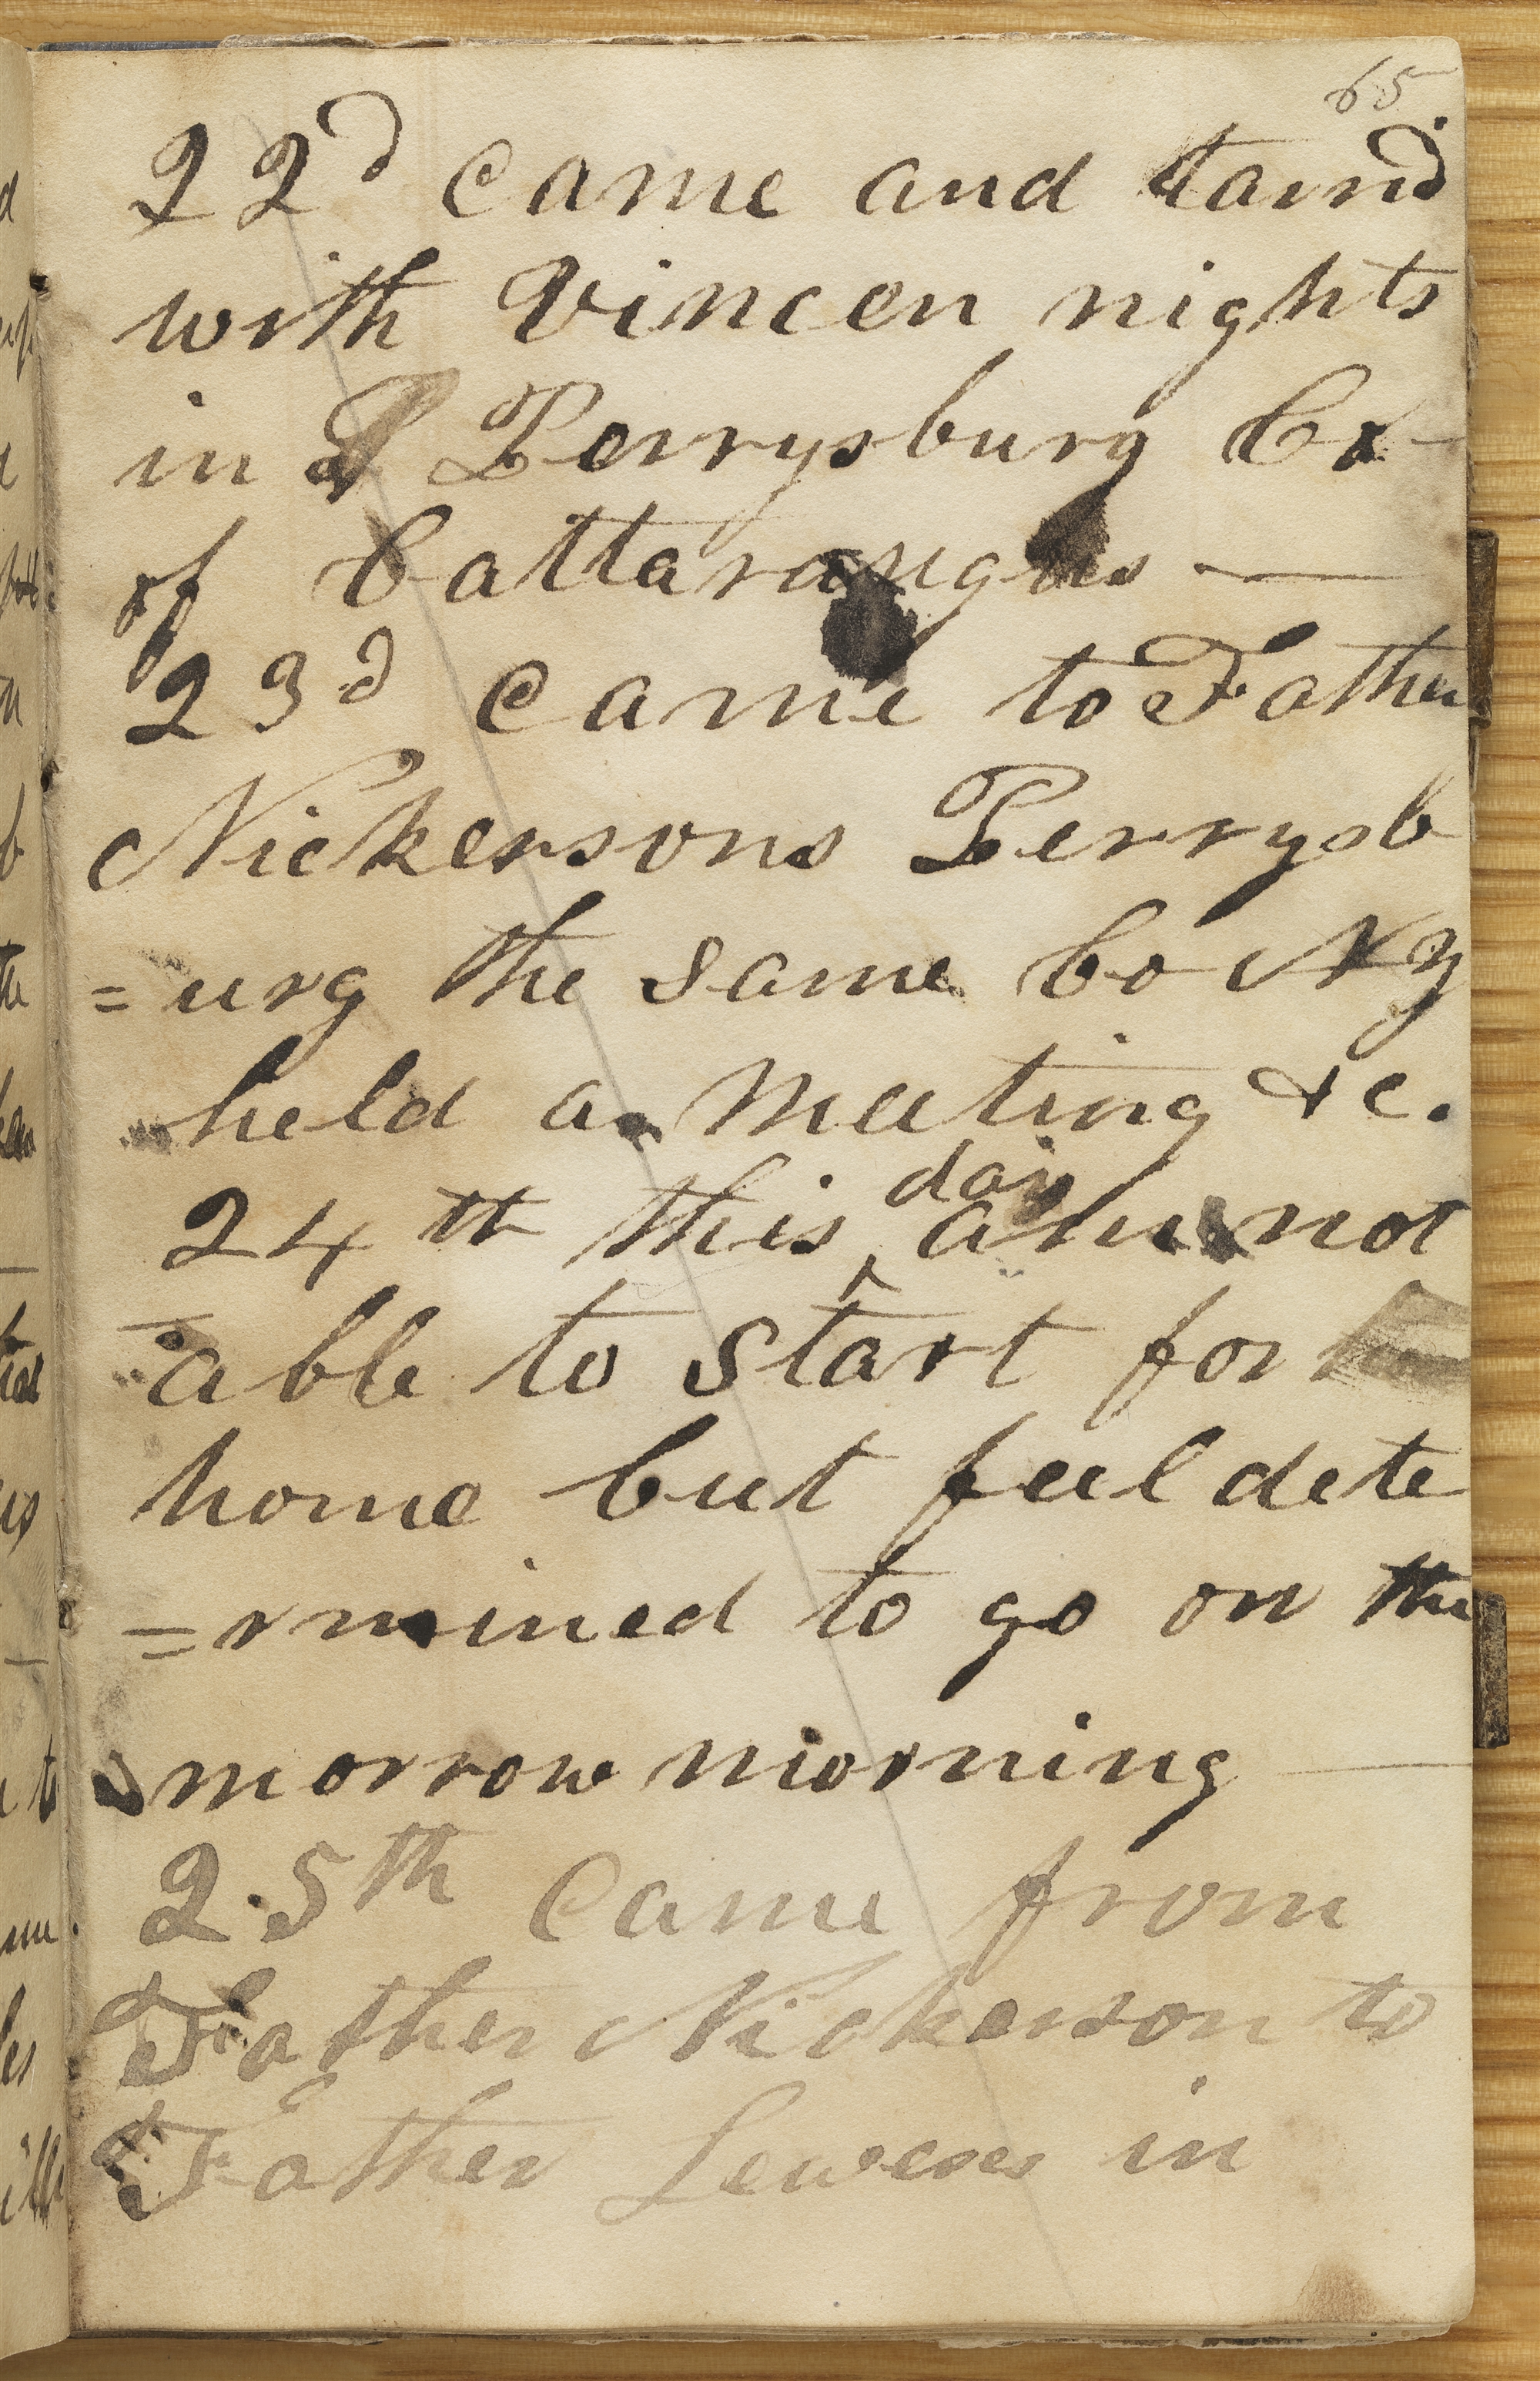 65
22d came and tarrid
with Vincen nights
in Perrysburg Co
of Cattaraugus —
23d came to Father
Nickersons Perrysb
=urg the same Co N Y
held a meeting &c.
24th this day am not
able to start for
home but feel dete
=rmined to go on the
morrow morning —
25th came from
Father Nickerson to
Father Leweses in